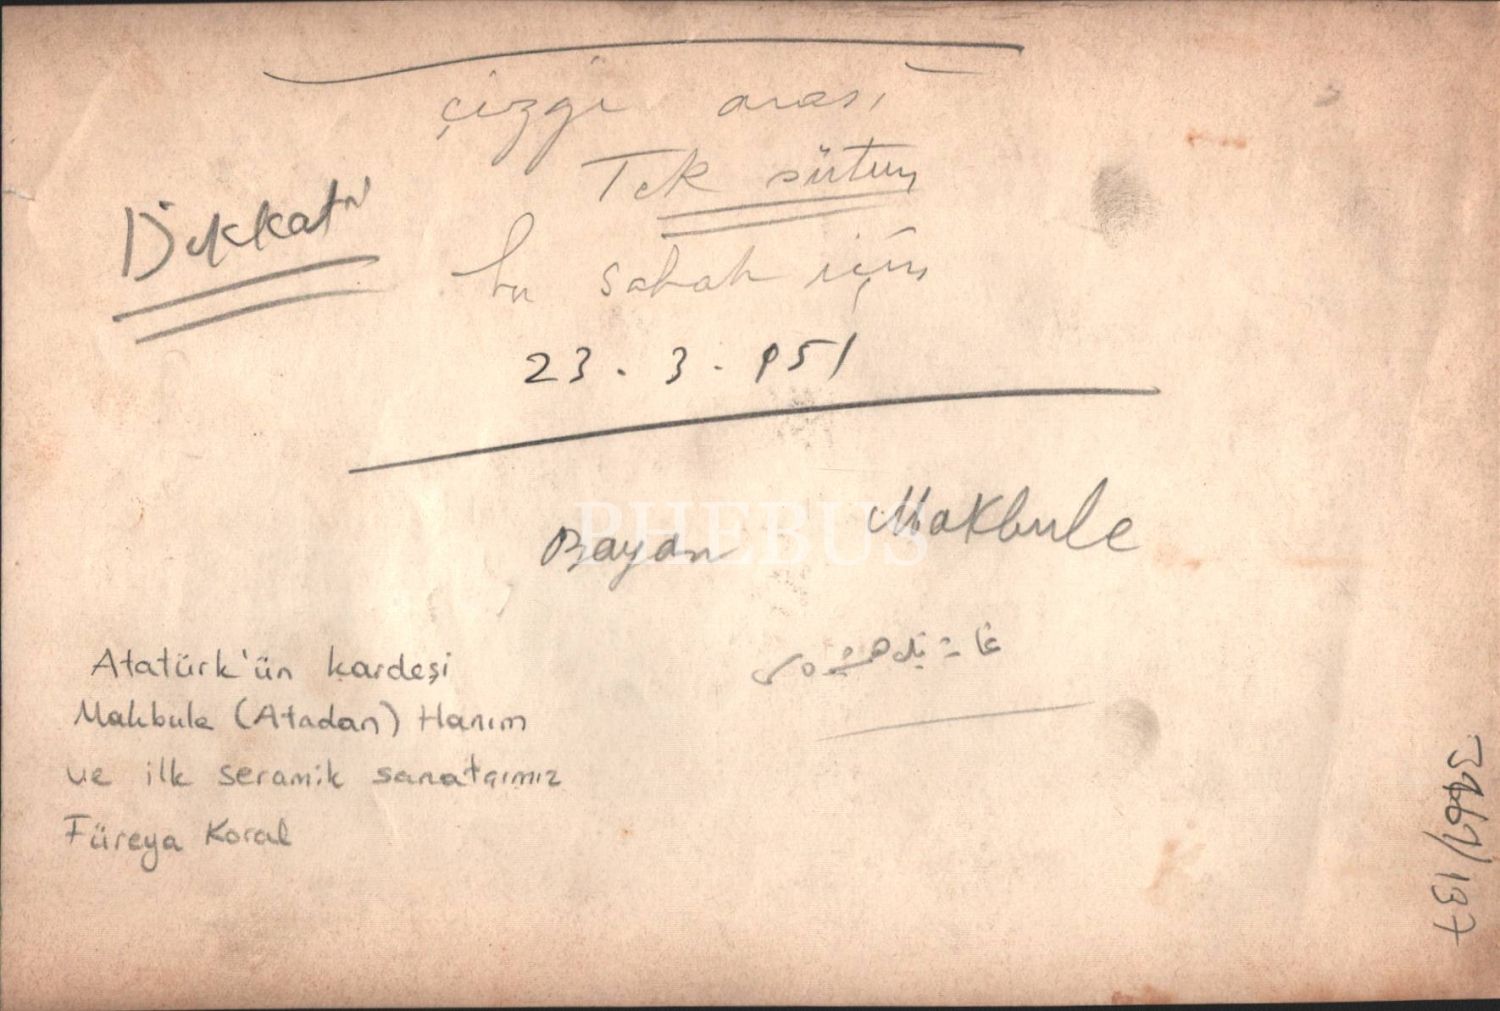 çizgi arası
Tek sütun
Dikkat
bu sabah için
23.3.951
Bayan Makbule
PHEBUS
Atatürk'ün kardeşi
Makbule (Atadan) Hanım
ve ilk seramik sanatçımız
Füreya Koral